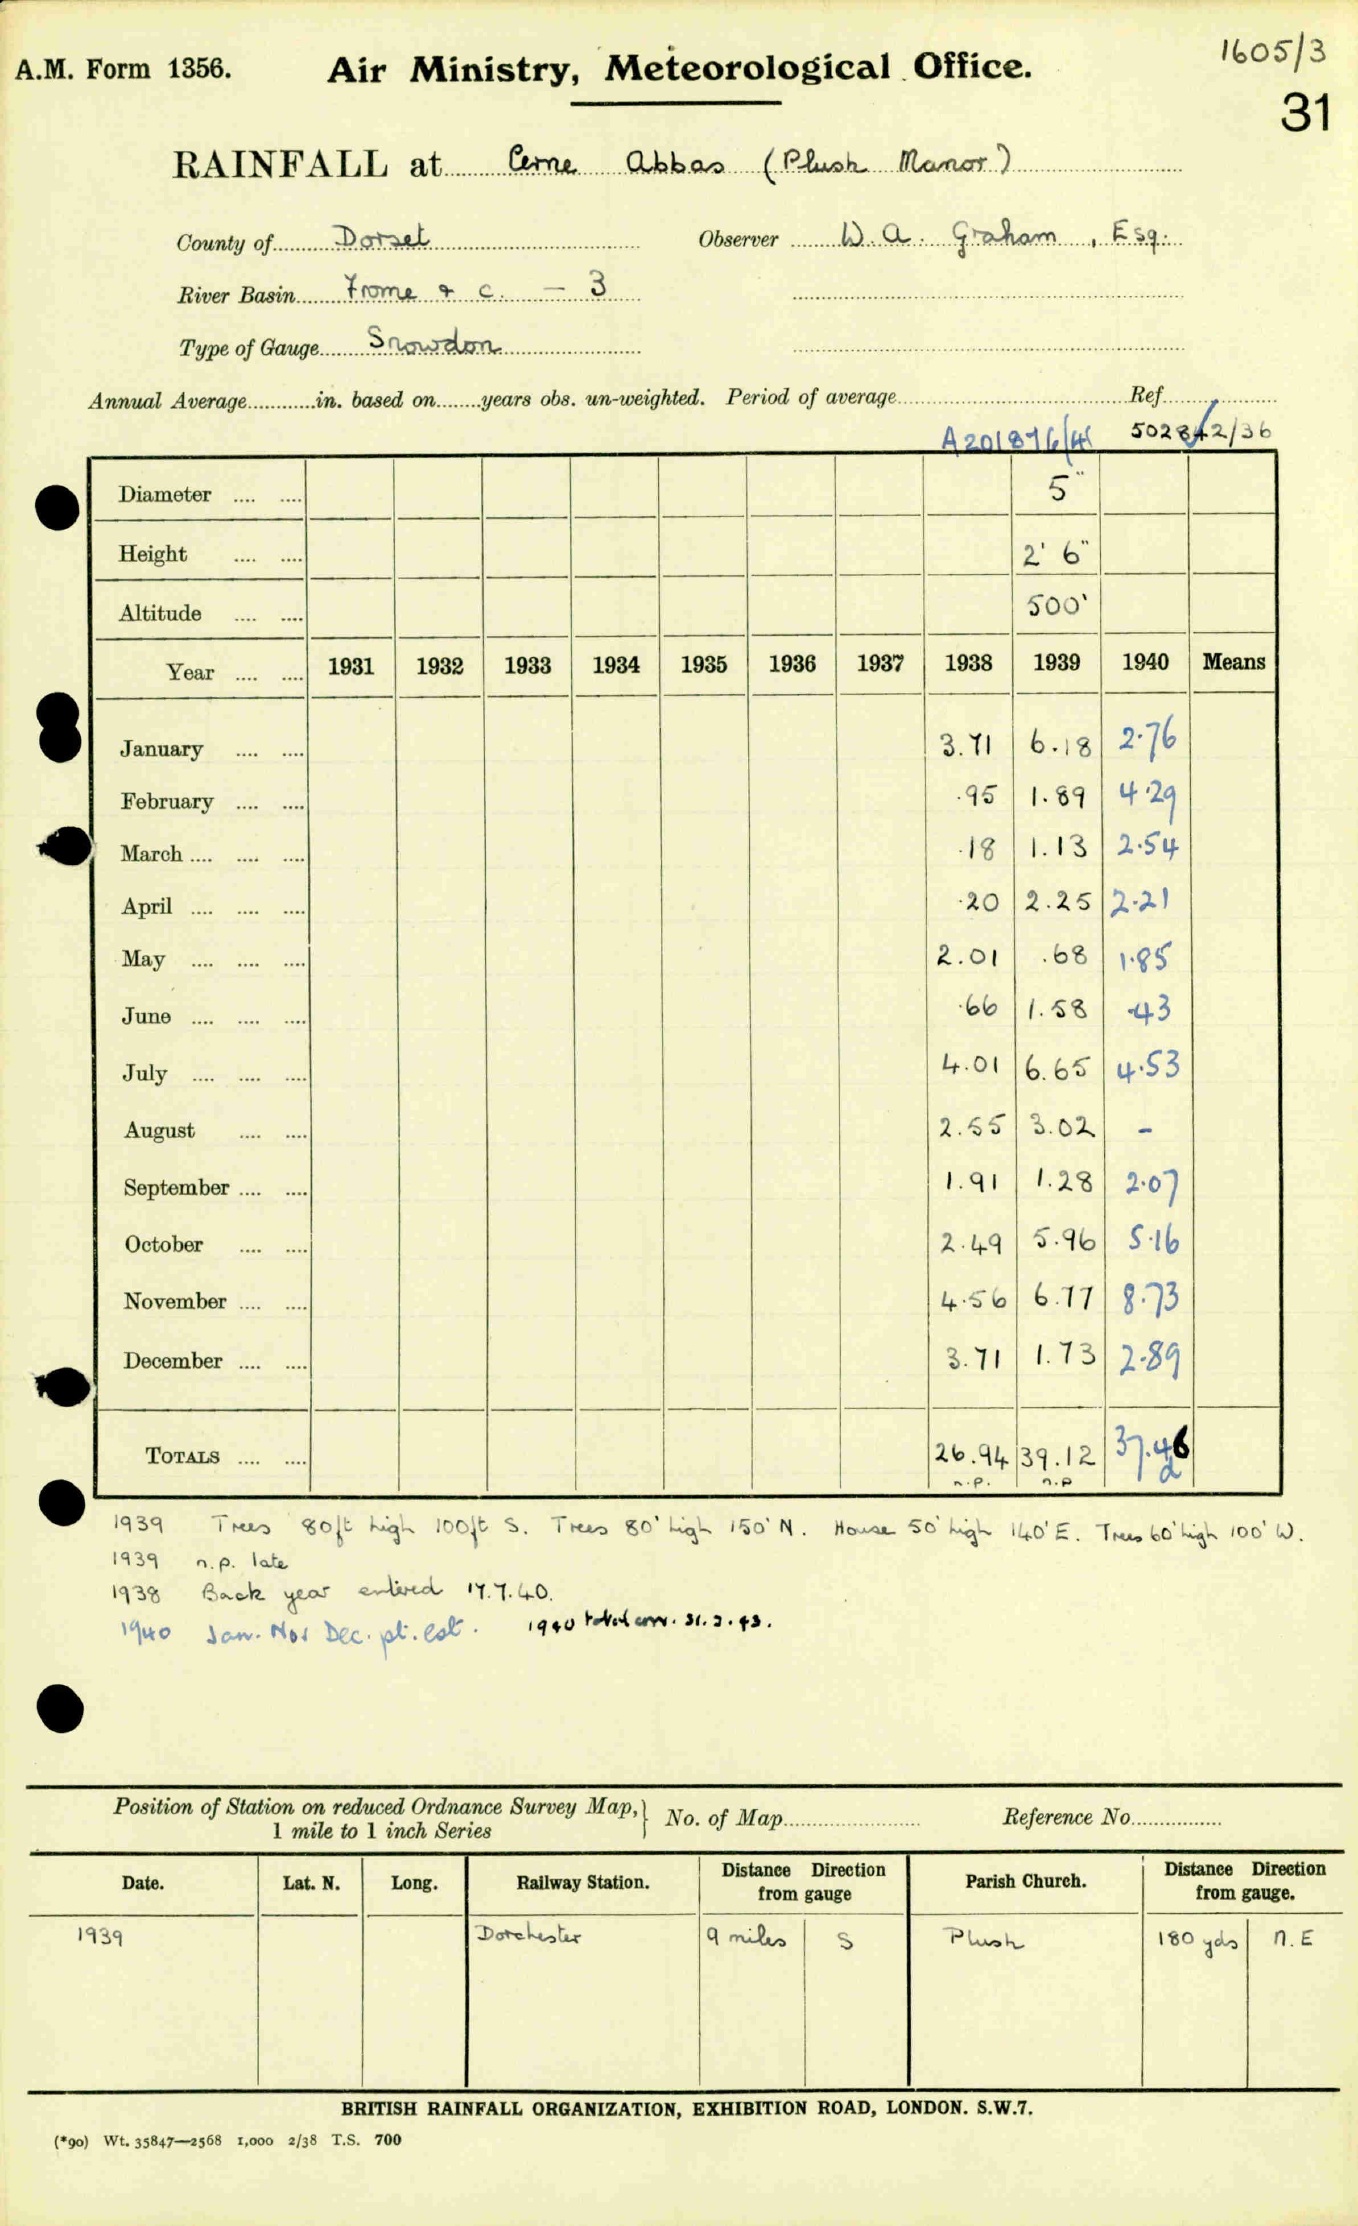 1605/3
A.M. Form 1356. Air Ministry, Meteorological Office.
31
RAINFALL at Cerne Abbas (Plush Manor)
County of Dorset Observer W. A. Graham, Esq.
River Basin Frome & c. — 3
Type of Gauge Snowdon
Annual Average in. based on years obs. un-weighted. Period of average Ref.
502842/36
Diameter 5"
Height 2' 6"
Altitude 500'
Year 1931 1932 1933 1934 1935 1936 1937 1938 1939 1940 Means
January 3.71 6.18 2.76
February .95 1.89 4.29
March .18 1.13 2.54
April .20 2.25 2.21
May 2.01 .68 1.85
June .66 1.58 .43
July 4.01 6.65 4.53
August 2.55 3.02 -
September 1.91 1.28 2.07
October 2.49 5.96 5.16
November 4.56 6.77 8.73
December 3.71 1.73 2.89
TOTALS 26.94 39.12 37.46
n.p. n.p
1939 Trees 80ft high 100ft S. Trees 80' high 150' N. House 50' high 140' E. Trees 60' high 100' W.
1939 n.p. late
1938 Back year entered 17.7.40.
1940 Jan. Nov Dec. pt. est. 1940 total corr. 31.3.43.
Position of Station on reduced Ordnance Survey Map, No. of Map Reference No.
1 mile to 1 inch Series
Date. Lat. N. Long. Railway Station. Distance Direction from gauge Parish Church. Distance Direction from gauge.
1939 Dorchester 9 miles S Plush 180 yds N.E
BRITISH RAINFALL ORGANIZATION, EXHIBITION ROAD, LONDON. S.W.7.
(*90) Wt. 35847—2568 1,000 2/38 T.S. 700